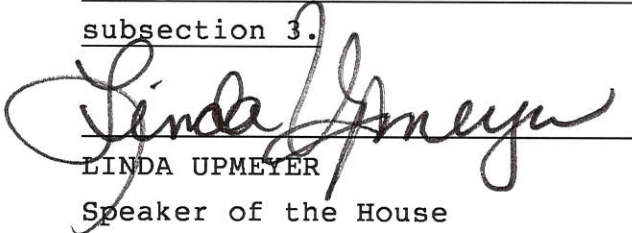 subsection 3.
Linda Upmeyer
LINDA UPMEYER
Speaker of the House